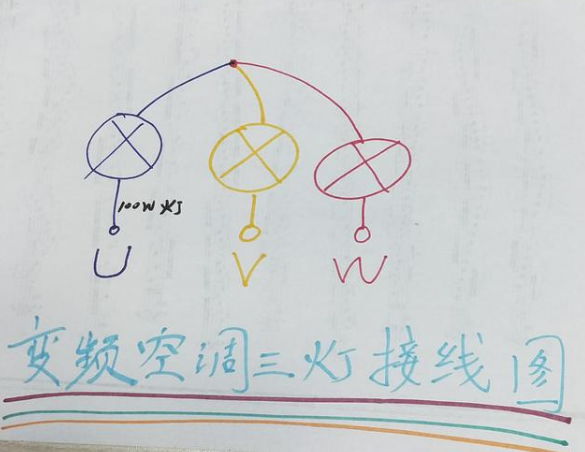 100W灯
U V W
变频空调三灯接线图